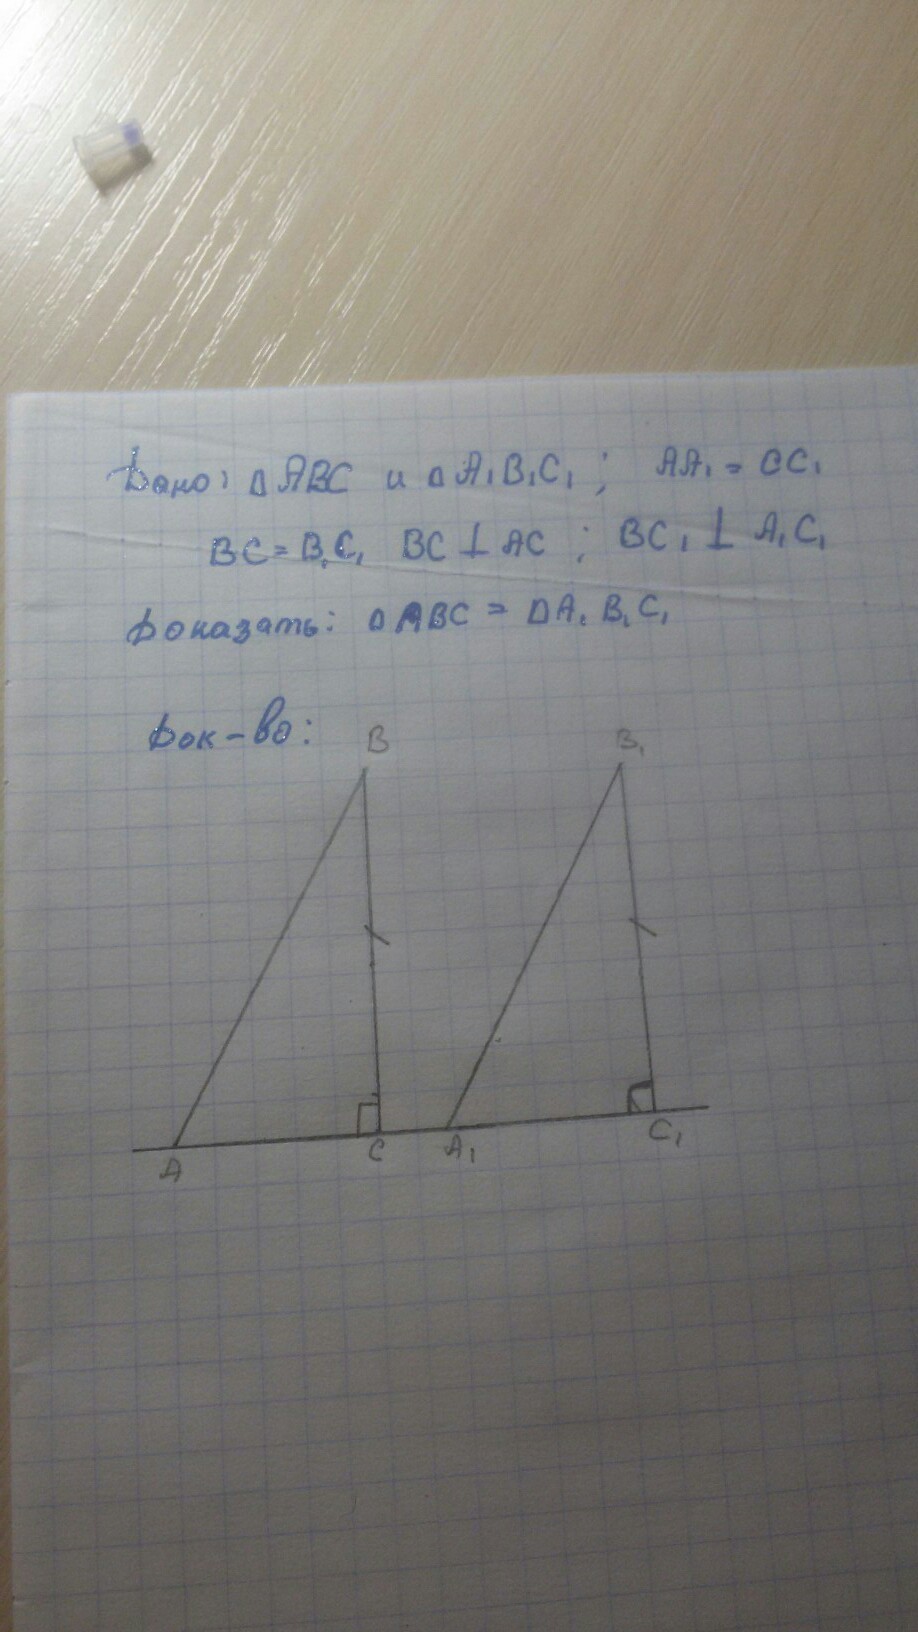 Дано: △ABC и △A₁B₁C₁; AA₁ = CC₁
BC = B₁C₁ BC ⊥ AC; BC₁ ⊥ A₁C₁
Доказать: △ABC = △A₁B₁C₁
Док-во:
B B₁
A C A₁ C₁